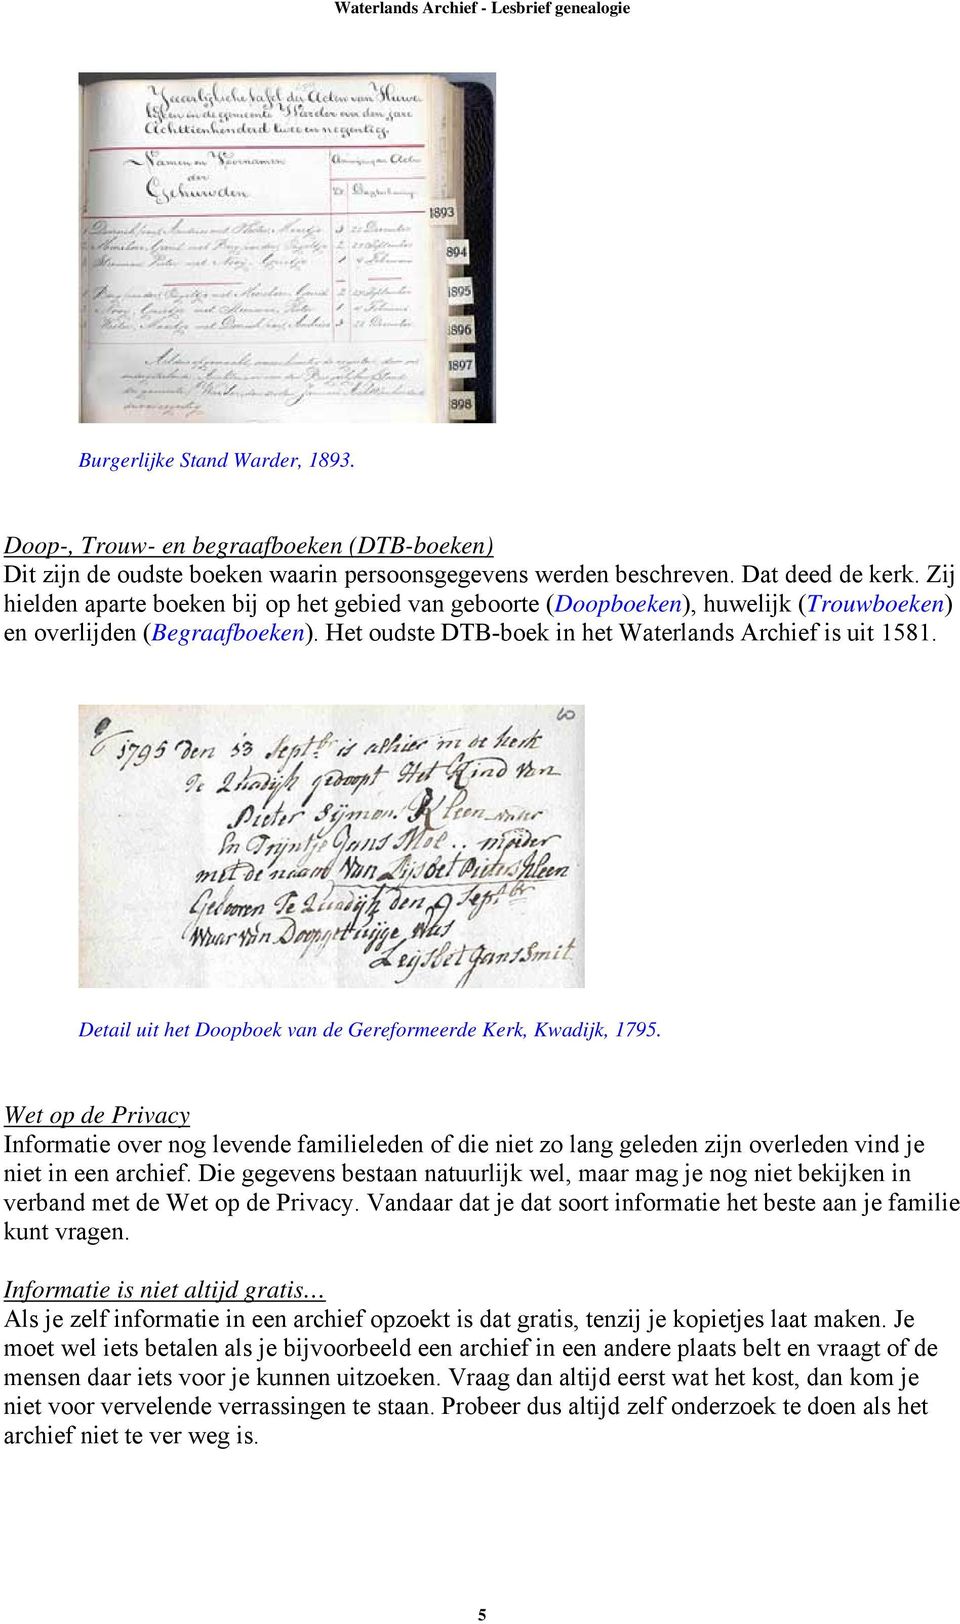 Waterlands Archief - Lesbrief genealogie
Jaarlijksche tafel der Acten van Huwe
lijken in de gemeente Warder over den jare
Achttienhonderd twee en negentig.
Namen en Voornamen
der
Gehuwden
Aanwijzing der Acten
Nr Dagteekening
1893
3 22 December
1894
2 29 September
1 4 Februari
1895
2 29 September
1 4 Februari
1896
3 22 December
1897
1898
Burgerlijke Stand Warder, 1893.
Doop-, Trouw- en begraafboeken (DTB-boeken)
Dit zijn de oudste boeken waarin persoonsgegevens werden beschreven. Dat deed de kerk. Zij
hielden aparte boeken bij op het gebied van geboorte (Doopboeken), huwelijk (Trouwboeken)
en overlijden (Begraafboeken). Het oudste DTB-boek in het Waterlands Archief is uit 1581.
60
1795 den 13 Septbr is alhier in de kerk
Te Quadijk gedoopt Het Kind van
Pieter Sijmon. Kleen vader
En Trijntje Jans Mol .. moeder
met de naam van Lijsbet Pieters Kleen
Gebooren Te Quadijk den 9 Septbr
Waar van Doopgetuijge was
Leijsbet Jans Smit
Detail uit het Doopboek van de Gereformeerde Kerk, Kwadijk, 1795.
Wet op de Privacy
Informatie over nog levende familieleden of die niet zo lang geleden zijn overleden vind je
niet in een archief. Die gegevens bestaan natuurlijk wel, maar mag je nog niet bekijken in
verband met de Wet op de Privacy. Vandaar dat je dat soort informatie het beste aan je familie
kunt vragen.
Informatie is niet altijd gratis…
Als je zelf informatie in een archief opzoekt is dat gratis, tenzij je kopietjes laat maken. Je
moet wel iets betalen als je bijvoorbeeld een archief in een andere plaats belt en vraagt of de
mensen daar iets voor je kunnen uitzoeken. Vraag dan altijd eerst wat het kost, dan kom je
niet voor vervelende verrassingen te staan. Probeer dus altijd zelf onderzoek te doen als het
archief niet te ver weg is.
5